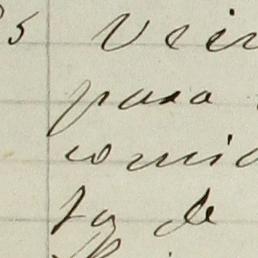 5 Vein
para
comid
ta de